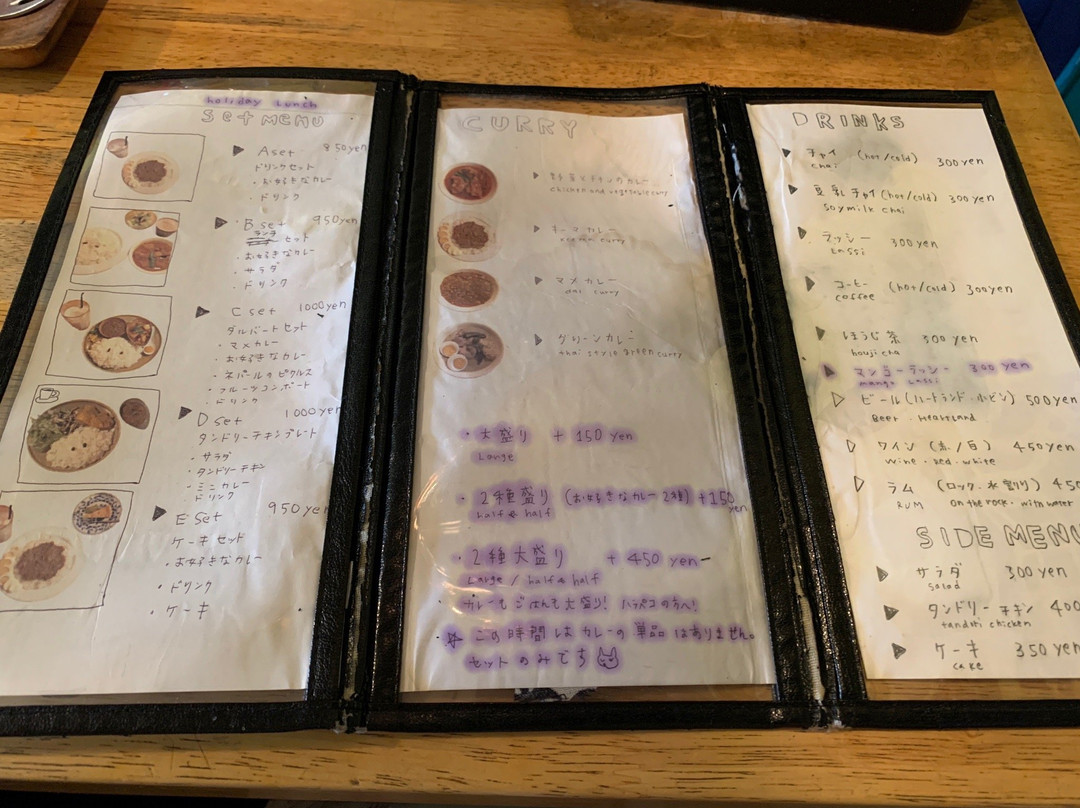 holiday Lunch
SET MENU
A set 850yen
ドリンクセット
・お好きなカレー
・ドリンク
B set 950yen
ランチ
セット
・お好きなカレー
・サラダ
・ドリンク
C set 1000yen
ダルバートセット
・マメカレー
・お好きなカレー
・ネパールのピクルス
・フルーツコンポート
・ドリンク
D set 1000yen
タンドリーチキンプレート
・サラダ
・タンドリーチキン
・ミニカレー
・ドリンク
E set 950yen
ケーキセット
・お好きなカレー
・ドリンク
・ケーキ
CURRY
野菜とチキンのカレー
chicken and vegetable curry
キーマカレー
keema curry
マメカレー
dal curry
グリーンカレー
thai style green curry
・大盛り +150 yen
Large
・2種盛り (お好きなカレー2種) +150 yen
half & half
・2種大盛り +450 yen
Large / half & half
カレーもごはんも大盛り! ハラペコの方へ!
☆ この時間はカレーの単品はありません。
セットのみです
DRINKS
チャイ (hot/cold) 300 yen
chai
豆乳チャイ (hot/cold) 300 yen
soymilk chai
ラッシー 300 yen
Lassi
コーヒー (hot/cold) 300yen
coffee
ほうじ茶 300 yen
houji cha
マンゴーラッシー 300 yen
mango lassi
ビール (ハートランド・小ビン) 500yen
Beer. Heartland
ワイン (赤/白) 450yen
wine. red. white
ラム (ロック・水割り) 450
RUM on the rock. with water
SIDE MENU
サラダ 300 yen
salad
タンドリーチキン 400
tandoti chicken
ケーキ 350 yen
cake